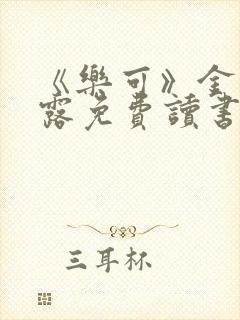 《樂可》全
露免費讀書
三耳杯